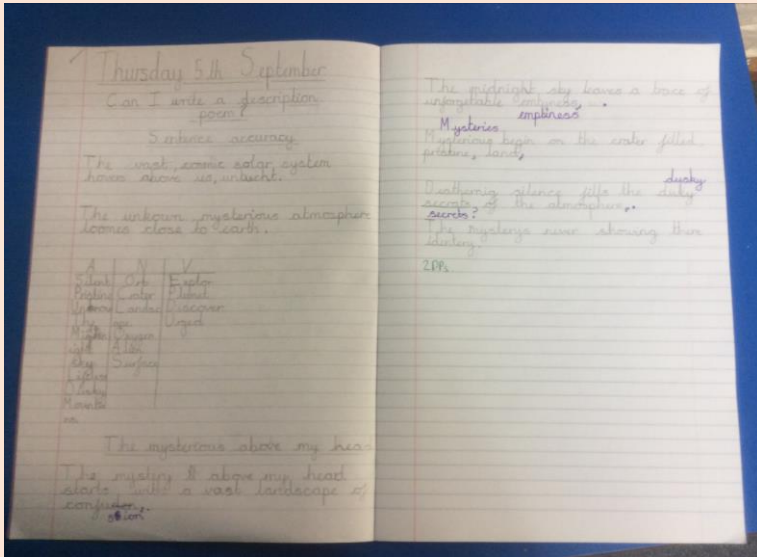 Thursday 5th September
Can I write a description
poem?
Sentence accuracy
The vast, cosmic solar system
hovers above us, untucht.
The unkown mysterious atmosphere
comes close to earth.
A N V
Silent Orb Explor
Pristine Crater Planet
Discover
Urged
Oxygen
Alien
Sky Surface
Lifeless
Dusky
Mounta
The mysterious above my head
The mystery above my head
starts with a vast landscape of
sion.
The midnight sky leaves a trace of
unforgetable emtyness.
emptiness
Mysteries
Mysterious begin on the crater filled
pristine, land,
dusky
silence fills the dusky
secrets, of the atmosphere.
secrets?
The mysterys never showing there
identity.
2DPs